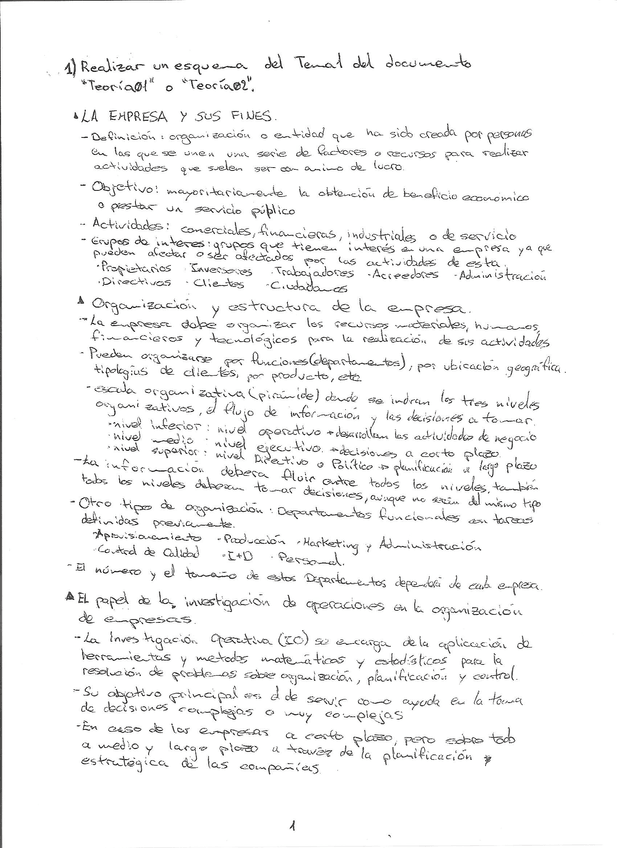 1) Realizar un esquema del Tema1 del documento
"Teoría01" o "Teoría02".
▲ LA EMPRESA Y SUS FINES.
- Definición: organización o entidad que ha sido creada por personas
en las que se unen una serie de factores o recursos para realizar
actividades que suelen ser con animo de lucro.
- Objetivo: mayoritariamente la obtención de beneficio economico
o prestar un servicio público
- Actividades: comerciales, financieras, industriales o de servicio
- Grupos de interes: grupos que tienen interés en una empresa ya que
pueden afectar o ser afectados por las actividades de esta.
· Propietarios · Inversores · Trabajadores · Acreedores · Administración
· Directivos · Clientes · Ciudadanos
▲ Organización y estructura de la empresa.
- La empresa debe organizar los recursos materiales, humanos,
financieros y tecnológicos para la realización de sus actividades
- Pueden organizarse por funciones (departamentos), por ubicación geográfica,
tipologias de clientes, por producto, etc
- escala organizativa (pirámide) donde se indran los tres niveles
organizativos, el flujo de información y las decisiones a tomar.
· nivel inferior: nivel operativo → desarrollan las actividades de negocio
· nivel medio: nivel ejecutivo → decisiones a corto plazo
· nivel superior: nivel Directivo o Político → planificación a largo plazo
- La información debera fluir entre todos los niveles, también
todos los niveles deberan tomar decisiones, aunque no serán del mismo tipo
- Otro tipo de organización: Departamentos funcionales con tareas
definidas previamente.
· Aprovisionamiento · Producción · Marketing y Administración
· Control de Calidad · I+D · Personal.
- El número y el tamaño de estos Departamentos dependerá de cada empresa.
▲ El papel de la investigación de operaciones en la organización
de empresas.
- La Investigación Operativa (IO) se encarga de la aplicación de
herramientas y metodos matemáticos y estadísticos para la
resolución de problemas sobre organización, planificación y control.
- Su objetivo principal es el de servir como ayuda en la toma
de decisiones complejas o muy complejas
- En caso de las empresas a corto plazo, pero sobre todo
a medio y largo plazo a través de la planificación
estratégica de las compañías.
1